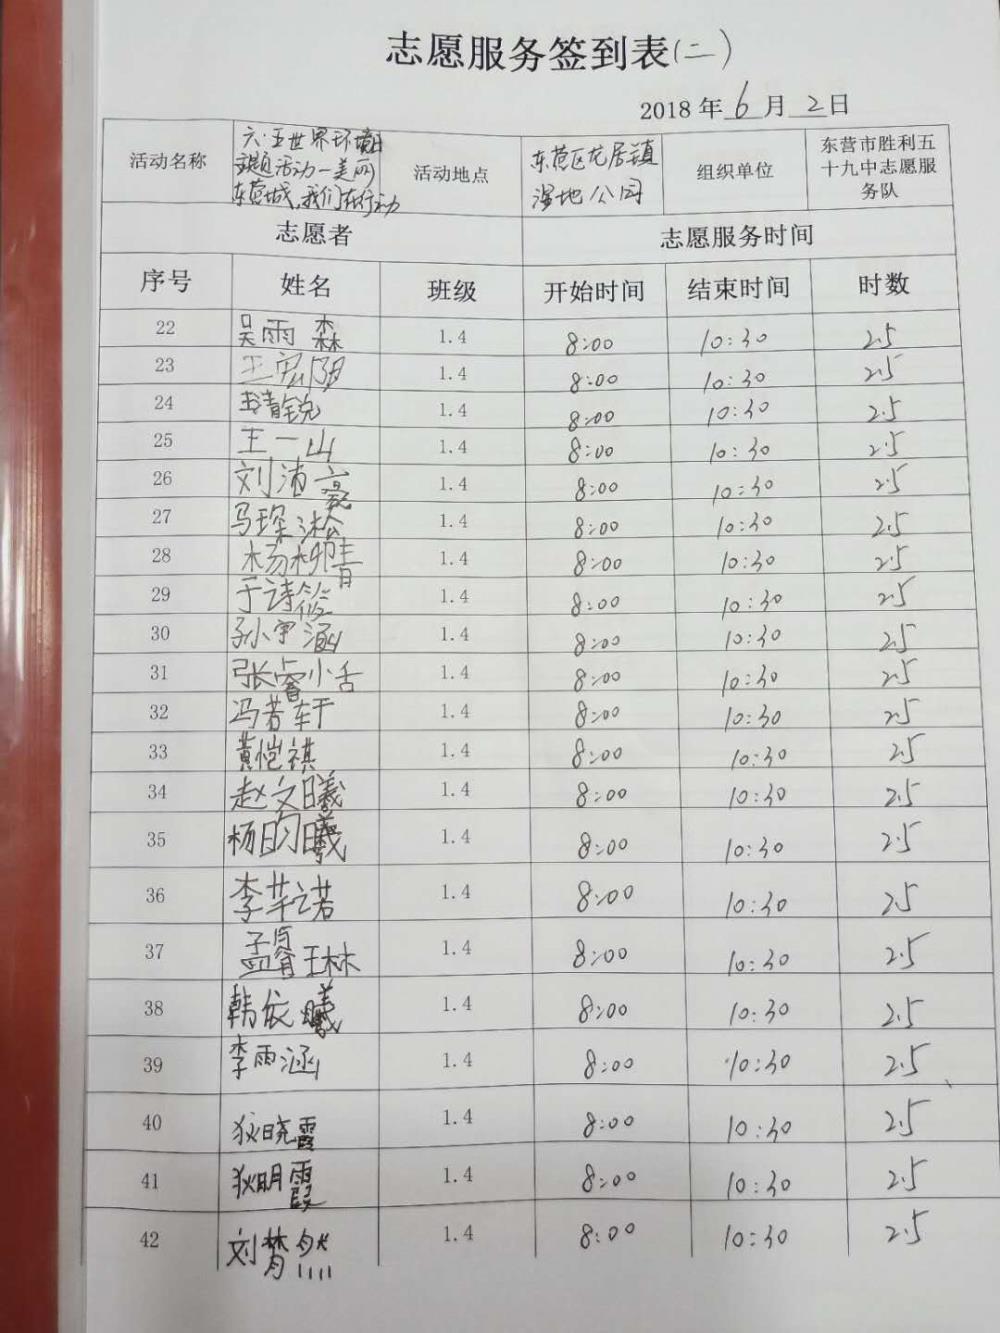 志愿服务签到表(二)
2018年6月2日
活动名称 六·五世界环境日 活动地点 东营区龙居镇 组织单位 东营市胜利五
主题活动—美丽 湿地公园 十九中志愿服
东营城,我们在行动 务队
志愿者 志愿服务时间
序号 姓名 班级 开始时间 结束时间 时数
22 吴雨森 1.4 8:00 10:30 2.5
23 王宏阳 1.4 8:00 10:30 2.5
24 1.4 8:00 10:30 2.5
25 王一山 1.4 8:00 10:30 2.5
26 刘沛亮 1.4 8:00 10:30 2.5
27 马琛淞 1.4 8:00 10:30 2.5
28 杨柳青 1.4 8:00 10:30 2.5
29 于诗 1.4 8:00 10:30 2.5
30 孙宇涵 1.4 8:00 10:30 2.5
31 张睿小舌 1.4 8:00 10:30 2.5
32 冯若轩 1.4 8:00 10:30 2.5
33 黄恺祺 1.4 8:00 10:30 2.5
34 赵文曦 1.4 8:00 10:30 2.5
35 杨昀曦 1.4 8:00 10:30 2.5
36 李芊诺 1.4 8:00 10:30 2.5
37 孟 琳 1.4 8:00 10:30 2.5
38 韩依曦 1.4 8:00 10:30 2.5
39 李雨涵 1.4 8:00 10:30 2.5
40 狄晓霞 1.4 8:00 10:30 2.5
41 狄明霞 1.4 8:00 10:30 2.5
42 刘梦然 1.4 8:00 10:30 2.5